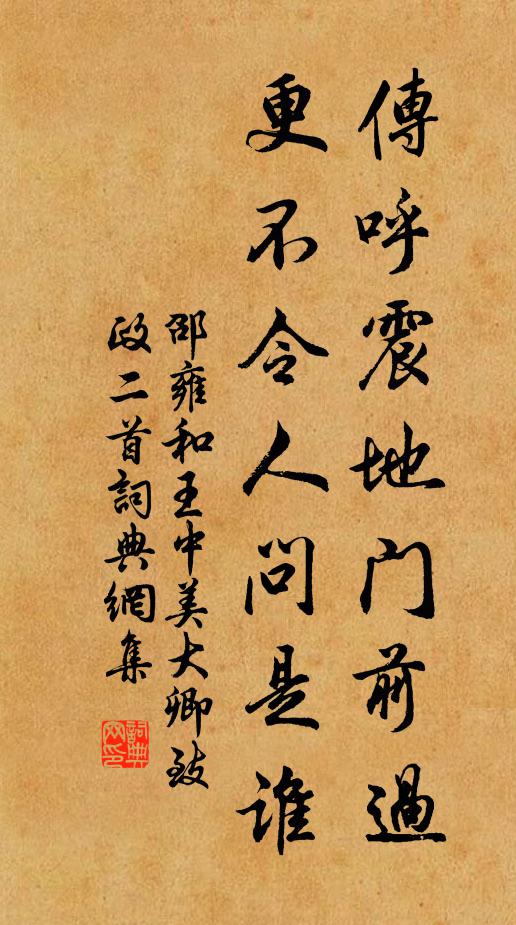 傳呼震地門前過
更不令人問是誰
邵雍和王中美大卿致
政二首詞典網集
詞典
网印